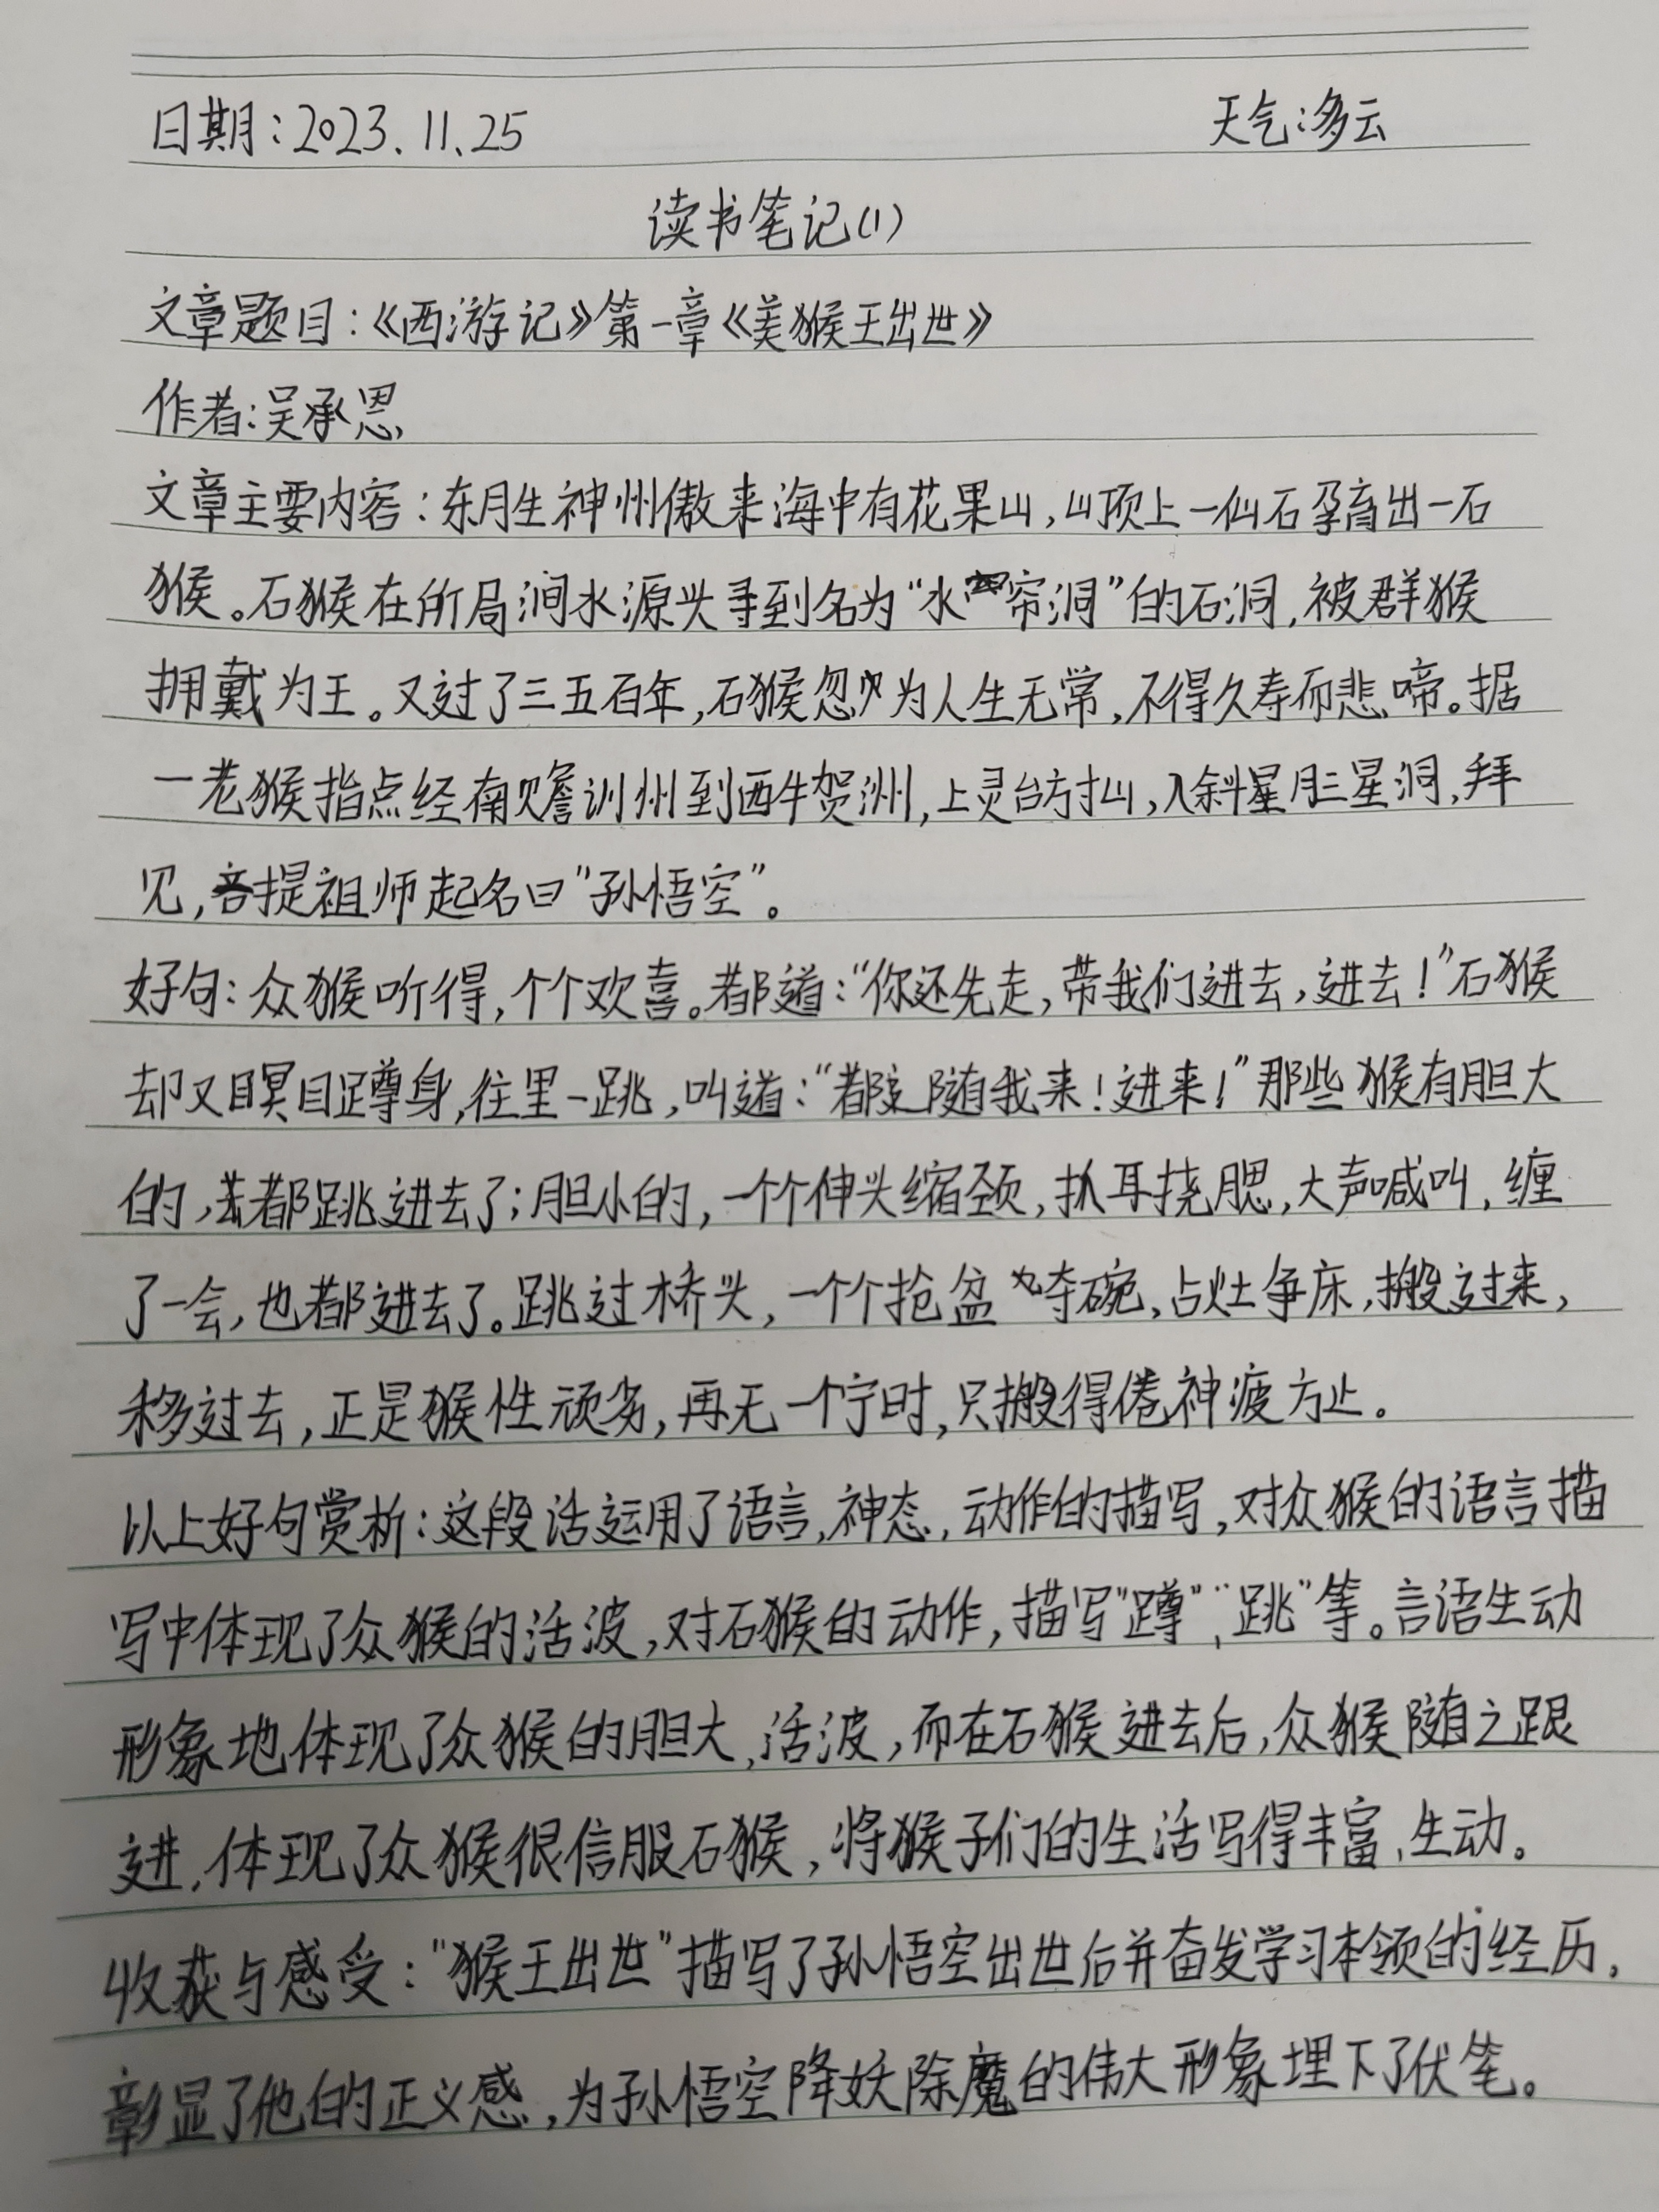 日期：2023.11.25 天气：多云
读书笔记(1)
文章题目：《西游记》第一章《美猴王出世》
作者：吴承恩
文章主要内容：东胜神州傲来海中有花果山，山顶上一仙石孕育出一石
猴。石猴在所局涧水源头寻到名为“水帘洞”的石洞，被群猴
拥戴为王。又过了三五百年，石猴忽为人生无常，不得久寿而悲啼。据
一老猴指点经南赡训州到西牛贺洲，上灵台方寸山，入斜星月三星洞，拜
见，菩提祖师起名曰“孙悟空”。
好句：众猴听得，个个欢喜。都道：“你还先走，带我们进去，进去！”石猴
却又瞑目蹲身，往里一跳，叫道：“都随我来！进来！”那些猴有胆大
的，都跳进去了；胆小的，一个个伸头缩颈，抓耳挠腮，大声喊叫，缠
了一会，也都进去了。跳过桥头，一个个抢盆夺碗，占灶争床，搬过来，
移过去，正是猴性顽劣，再无一个宁时，只搬得倦神疲方止。
以上好句赏析：这段话运用了语言，神态，动作的描写，对众猴的语言描
写中体现了众猴的活波，对石猴的动作，描写“蹲”、“跳”等。言语生动
形象地体现了众猴的胆大，活波，而在石猴进去后，众猴随之跟
进，体现了众猴很信服石猴，将猴子们的生活写得丰富，生动。
收获与感受：“猴王出世”描写了孙悟空出世后并奋发学习本领的经历，
彰显了他的正义感，为孙悟空降妖除魔的伟大形象埋下了伏笔。